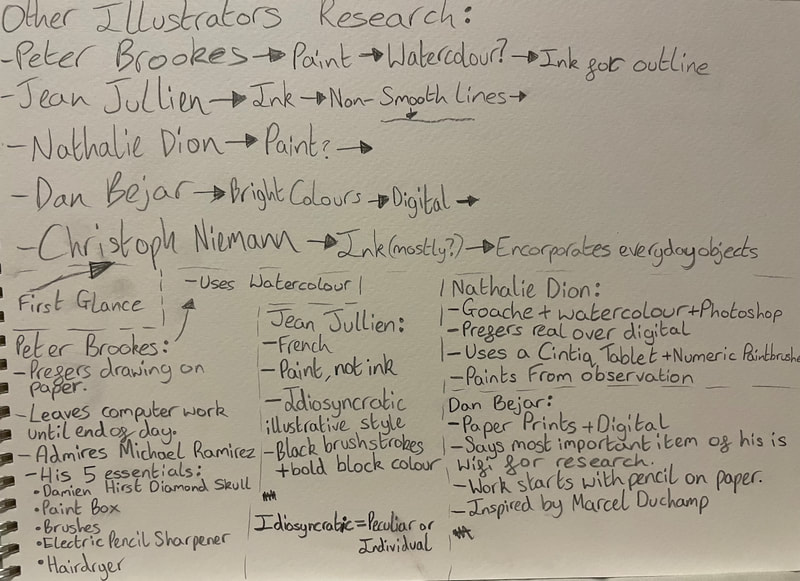 Other Illustrators Research:
-Peter Brookes→Paint→Watercolour?→Ink for outline
-Jean Jullien→Ink→Non-Smooth lines→
-Nathalie Dion→Paint?→
-Dan Bejar→Bright Colours→Digital→
-Christoph Niemann→Ink(mostly?)→Encorporates everyday objects
First Glance
-Uses Watercolour
Peter Brookes:
-Prefers drawing on
paper.
-Leaves computer work
until end of day.
-Admires Michael Ramirez
-His 5 essentials:
•Damien Hirst Diamond Skull
•Paint Box
•Brushes
•Electric Pencil Sharpener
•Hairdryer
Jean Jullien:
-French
-Paint, not ink
-Idiosyncratic
illustrative style
-Black brushstrokes
+bold block colour
Idiosyncratic=Peculiar or
Individual
Nathalie Dion:
-Goache+watercolour+Photoshop
-Prefers real over digital
-Uses a Cintiq Tablet+Numeric Paintbrushe
-Paints From observation
Dan Bejar:
-Paper Prints+Digital
-Says most important item of his is
wifi for research.
-Work starts with pencil on paper.
-Inspired by Marcel Duchamp